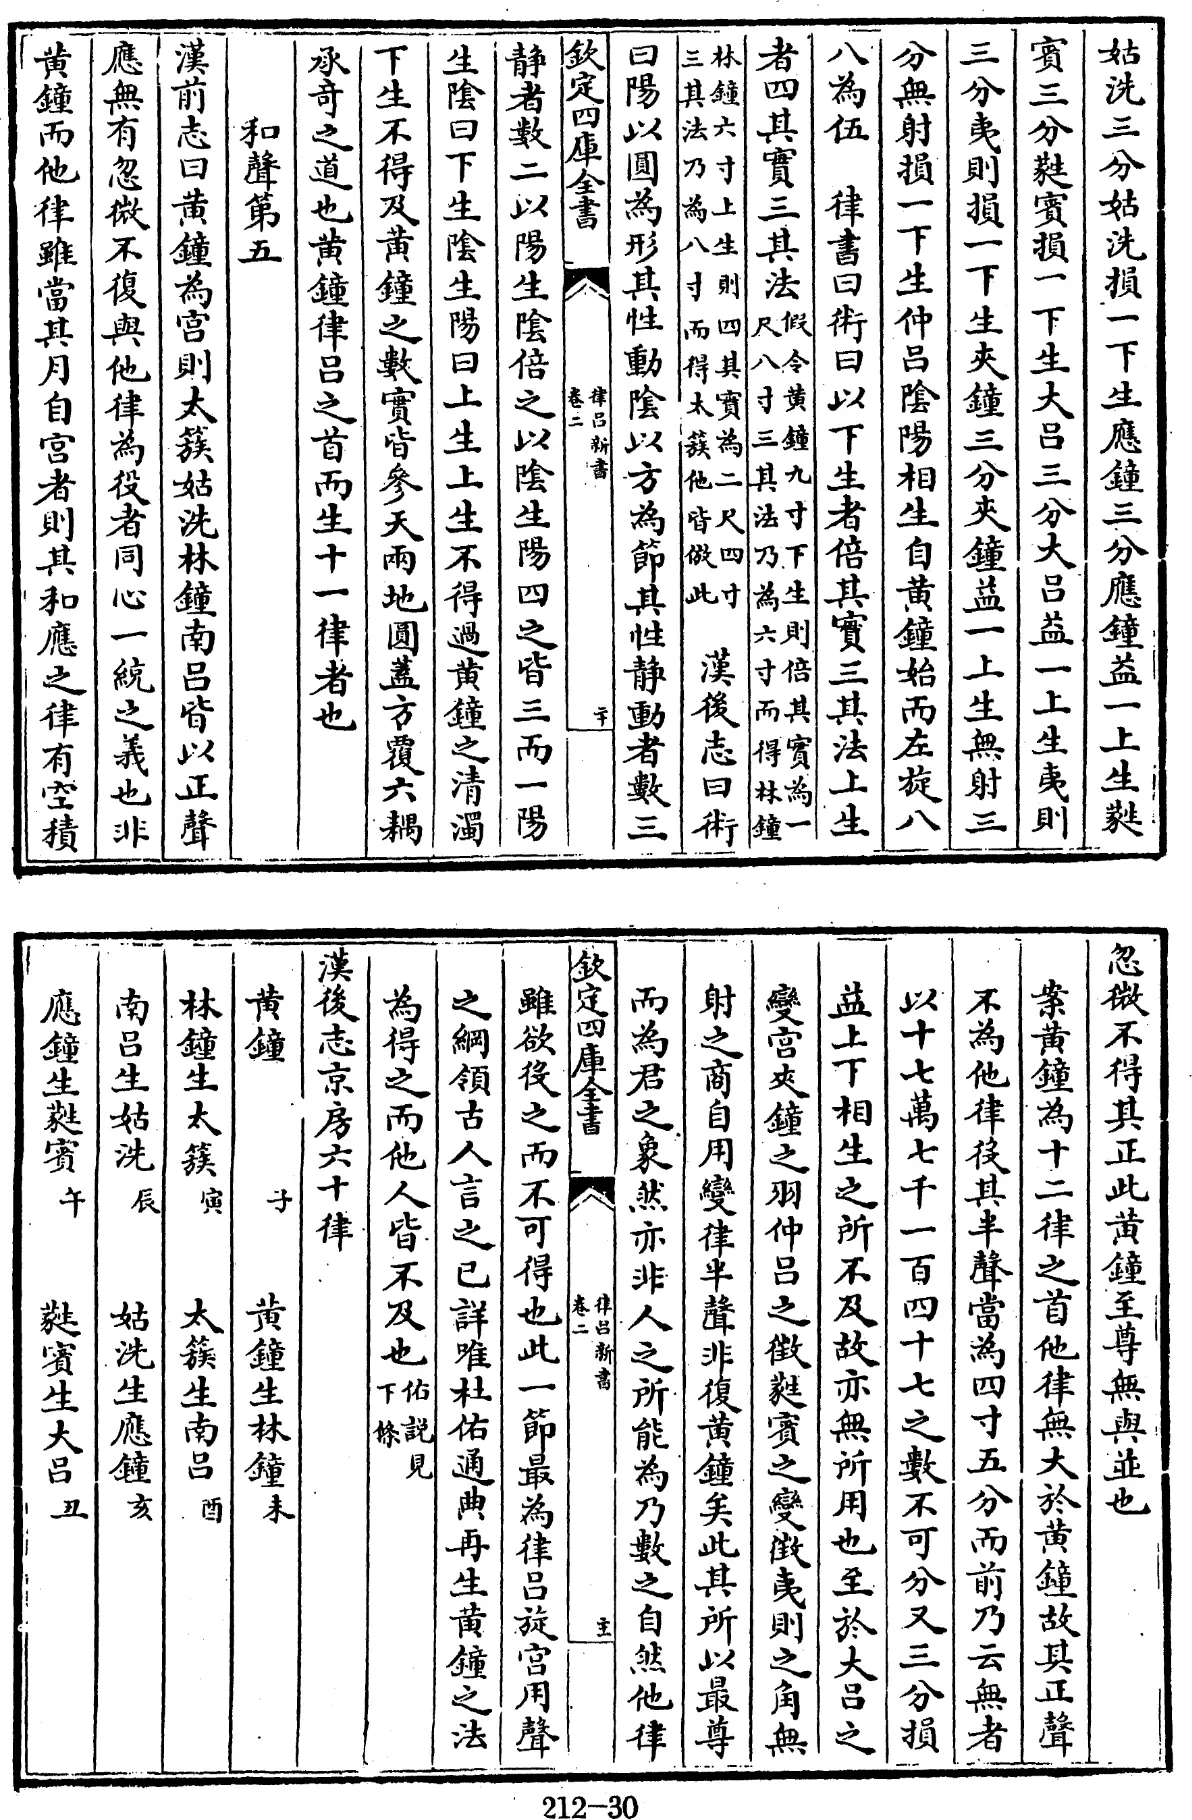 姑洗三分姑洗損一下生應鐘三分應鐘益一上生蕤
賓三分蕤賓損一下生大呂三分大呂益一上生夷則
三分夷則損一下生夾鐘三分夾鐘益一上生無射三
分無射損一下生仲呂陰陽相生自黄鐘始而左旋八
八為伍　律書曰術曰以下生者倍其實三其法上生
者四其實三其法假令黄鐘九寸下生則倍其實為一
尺八寸三其法乃為六寸而得林鐘
林鐘六寸上生則四其實為二尺四寸
三其法乃為八寸而得太簇他皆倣此　漢後志曰術
曰陽以圓為形其性動陰以方為節其性静動者數三
欽定四庫全書
律呂新書
卷二
二十
静者數二以陽生陰倍之以陰生陽四之皆三而一陽
生陰曰下生陰生陽曰上生上生不得過黄鐘之清濁
下生不得及黄鐘之數實皆參天兩地圓蓋方覆六耦
承奇之道也黄鐘律呂之首而生十一律者也
和聲第五
漢前志曰黄鐘為宫則太簇姑洗林鐘南呂皆以正聲
應無有忽微不復與他律為役者同心一統之義也非
黄鐘而他律雖當其月自宫者則其和應之律有空積
忽微不得其正此黄鐘至尊無與並也
案黄鐘為十二律之首他律無大於黄鐘故其正聲
不為他律役其半聲當為四寸五分而前乃云無者
以十七萬七千一百四十七之數不可分又三分損
益上下相生之所不及故亦無所用也至於大呂之
變宫夾鐘之羽仲呂之徵蕤賓之變徵夷則之角無
射之商自用變律半聲非復黄鐘矣此其所以最尊
而為君之象然亦非人之所能為乃數之自然他律
欽定四庫全書
律呂新書
卷二
雖欲役之而不可得也此一節最為律呂旋宫用聲
之綱領古人言之已詳唯杜佑通典再生黄鐘之法
為得之而他人皆不及也佑説見
下條
漢後志京房六十律
黄鐘　子　黄鐘生林鐘未
林鐘生太簇寅　太簇生南呂酉
南呂生姑洗辰　姑洗生應鐘亥
應鐘生蕤賓午　蕤賓生大呂丑
212-30